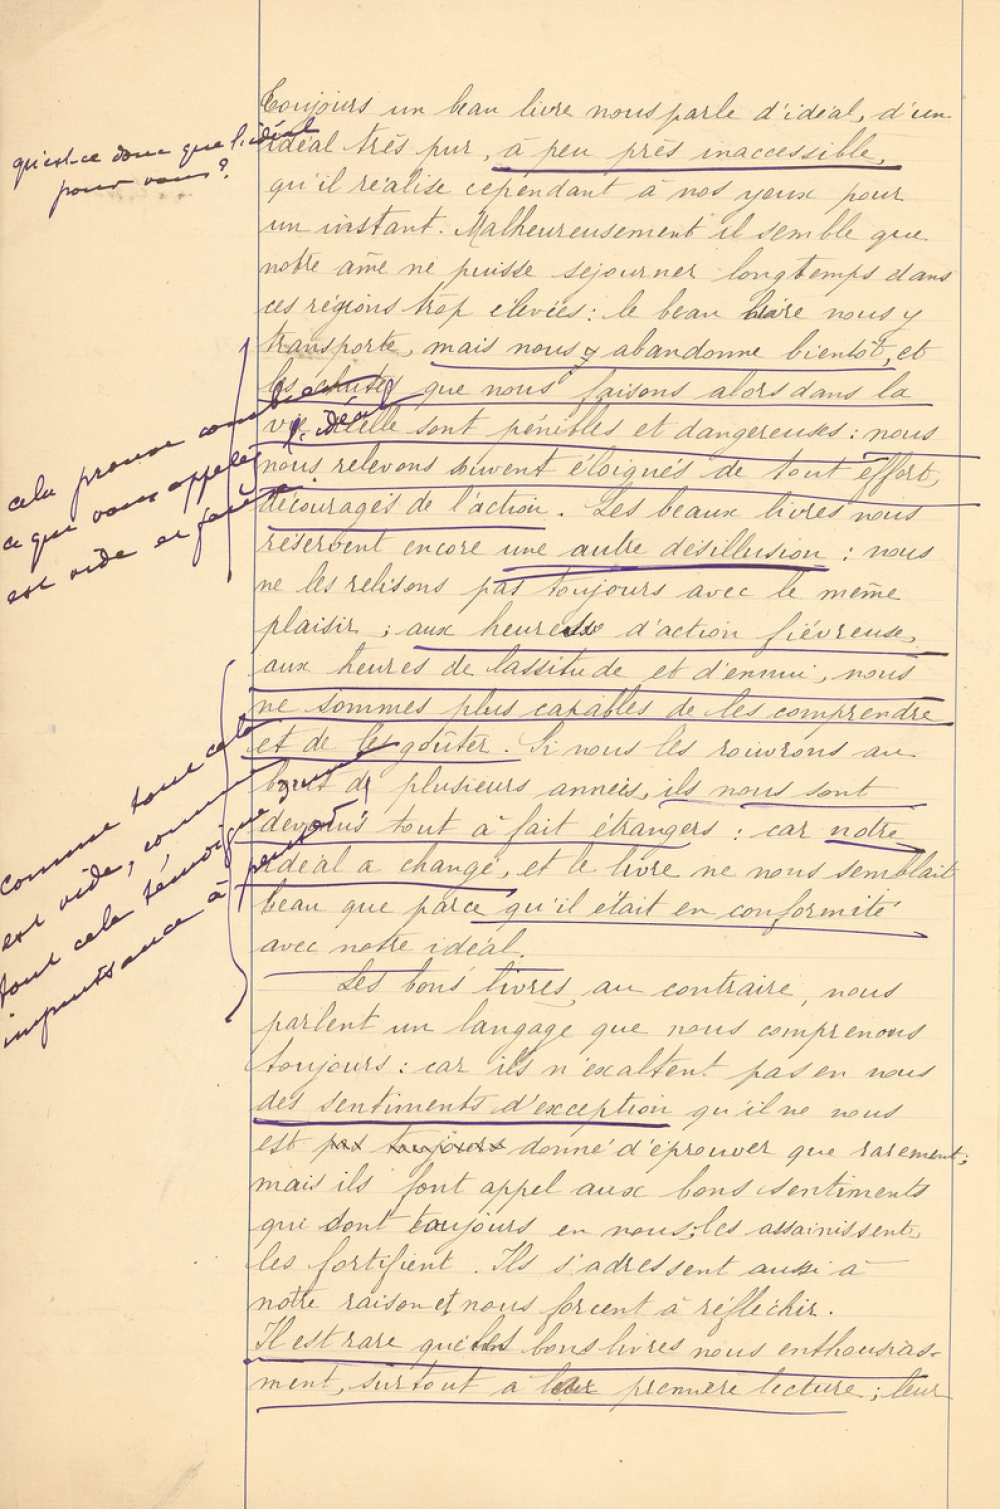 Toujours un beau livre nous parle d'idéal, d'un
idéal très pur, à peu près inaccessible,
qu'il réalise cependant à nos yeux pour
un instant. Malheureusement il semble que
notre âme ne puisse séjourner longtemps dans
ces régions trop élevées : le beau livre nous y
transporte, mais nous y abandonne bientôt, et
les chutes que nous faisons alors dans la
vie réelle sont pénibles et dangereuses : nous
nous relevons souvent éloignés de tout effort,
découragés de l'action. Les beaux livres nous
réservent encore une autre désillusion : nous
ne les relisons pas toujours avec le même
plaisir ; aux heures d'action fiévreuse,
aux heures de lassitude et d'ennui, nous
ne sommes plus capables de les comprendre
et de les goûter. Si nous les rouvrons au
bout de plusieurs années, ils nous sont
devenus tout à fait étrangers : car notre
idéal a changé, et le livre ne nous semblait
beau que parce qu'il était en conformité
avec notre idéal.
Les bons livres, au contraire, nous
parlent un langage que nous comprenons
toujours : car ils n'exaltent pas en nous
des sentiments d'exception qu'il ne nous
est pas toujours donné d'éprouver que rarement ;
mais ils font appel aux bons sentiments
qui dont toujours en nous, les assainissent,
les fortifient. Ils s'adressent aussi à
notre raison et nous forcent à réfléchir.
Il est rare que les bons livres nous enthousias-
ment, surtout à la première lecture ; leur
qu'est-ce donc que l'idéal
pour vous ?
cela prouve combien
ce que vous appelez l'idéal
est vide et
comme tout cela
est vide, comme
tout cela témoigne d'une
impuissance à penser !